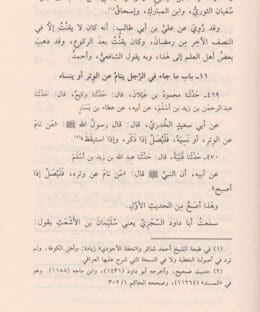 سُفيان الثوريُّ، وابن المبارك، وإسحاق(١).
وقد رُوِيَ عن علي بن أبي طالبٍ: أنه كان لا يقنُتُ إلَّا في
النصف الآخر مِن رمضانَ، وكان يقنُتُ بعدَ الركوع، وقد ذهبَ
بعضُ أهل العلم إلى هذا، وبه يقول الشافعيُّ، وأحمدُ.
١١- باب ما جاء في الرَّجل ينامُ عن الوِتر أو ينساه
٤٦٩- حَدَّثنا محمودُ بن غَيْلان، قال: حَدَّثنا وكيعٌ، قال: حَدَّثنا
عبدالرحمن بن زيد بن أسلم، عن أبيه، عن عطاء بن يَسَارٍ
عن أبي سعيدٍ الخُدريِّ، قال: قال رسولُ الله ﷺ: «مَن نامَ
عن الوِترِ، أو نَسِيَه، فَلْيُصلِّ إذا ذَكَرَ، وإذا استيقظَ»(٢).
٤٧٠- حَدَّثنا قُتَيبةُ، قال: حَدَّثنا عبد الله بن زيد بن أسْلَم
عن أبيه، أن النبيَّ ﷺ قال: «مَن نامَ عن وِترِه، فَلْيُصلِّ إذا
أصبحَ»
وهذا أصحُّ مِن الحديثِ الأوَّلِ.
سمعتُ أبا داود السِّجْزيَّ يعني سُليمانَ بن الأشْعَثِ يقول:
(١) في طبعة الشيخ أحمد شاكر و«تحفة الأحوذي» زيادة: وأهل الكوفة. ولم
ترد في أصولنا الخطية ولا في النسخة التي شرح عليها العراقي
(٢) حديث صحيح، وأخرجه أبو داود (١٤٣١)، وابن ماجه (١١٨٨). وهو
في «المسند» (١١٢٦٤)، وصححه الحاكم ٣٠٢/١